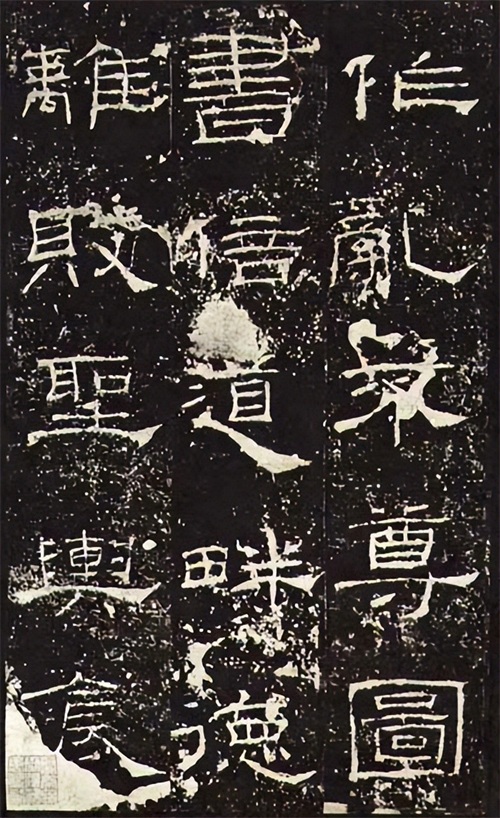 作亂不尊圖
書倍道畔德
離敗聖輿食